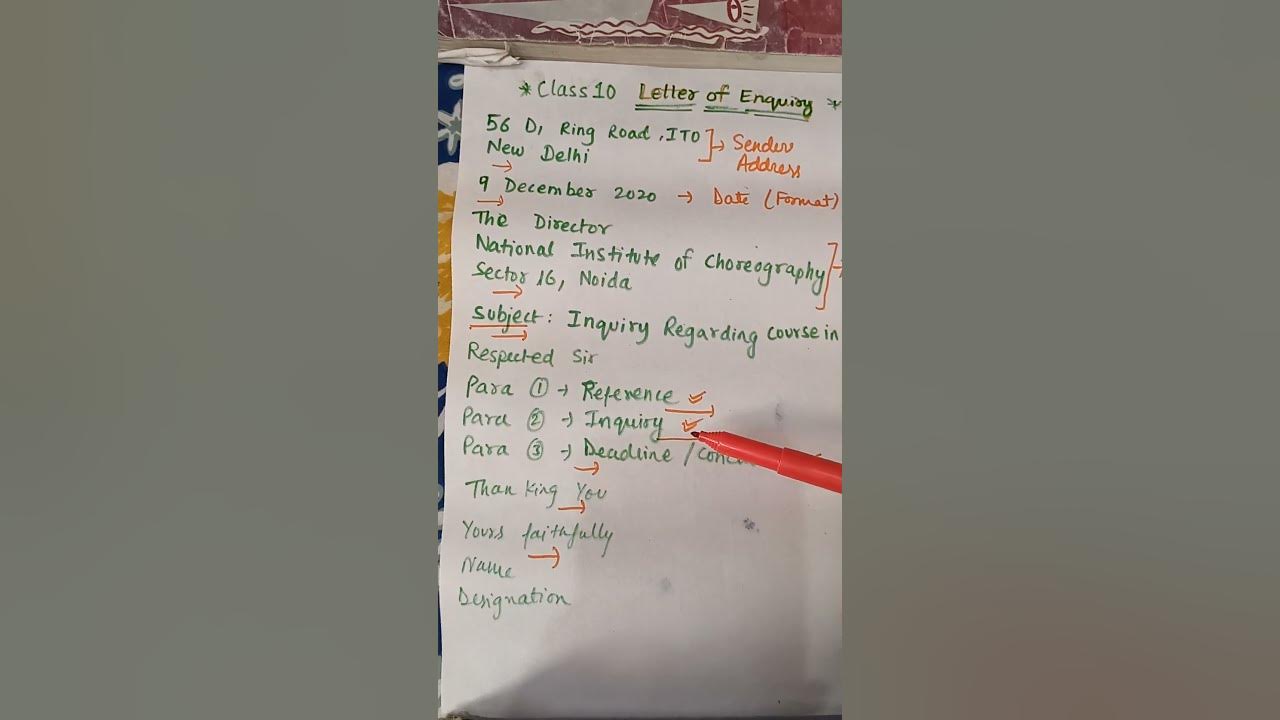 * Class 10 Letter of Enquiry *
56 D, Ring Road, ITO → Sender
New Delhi Address
9 December 2020 → Date (Format)
The Director
National Institute of Choreography
Sector 16, Noida
Subject: Inquiry Regarding course in
Respected Sir
Para ① → Reference
Para ② → Inquiry
Para ③ → Deadline /
Thanking You
Yours faithfully
Name
Designation